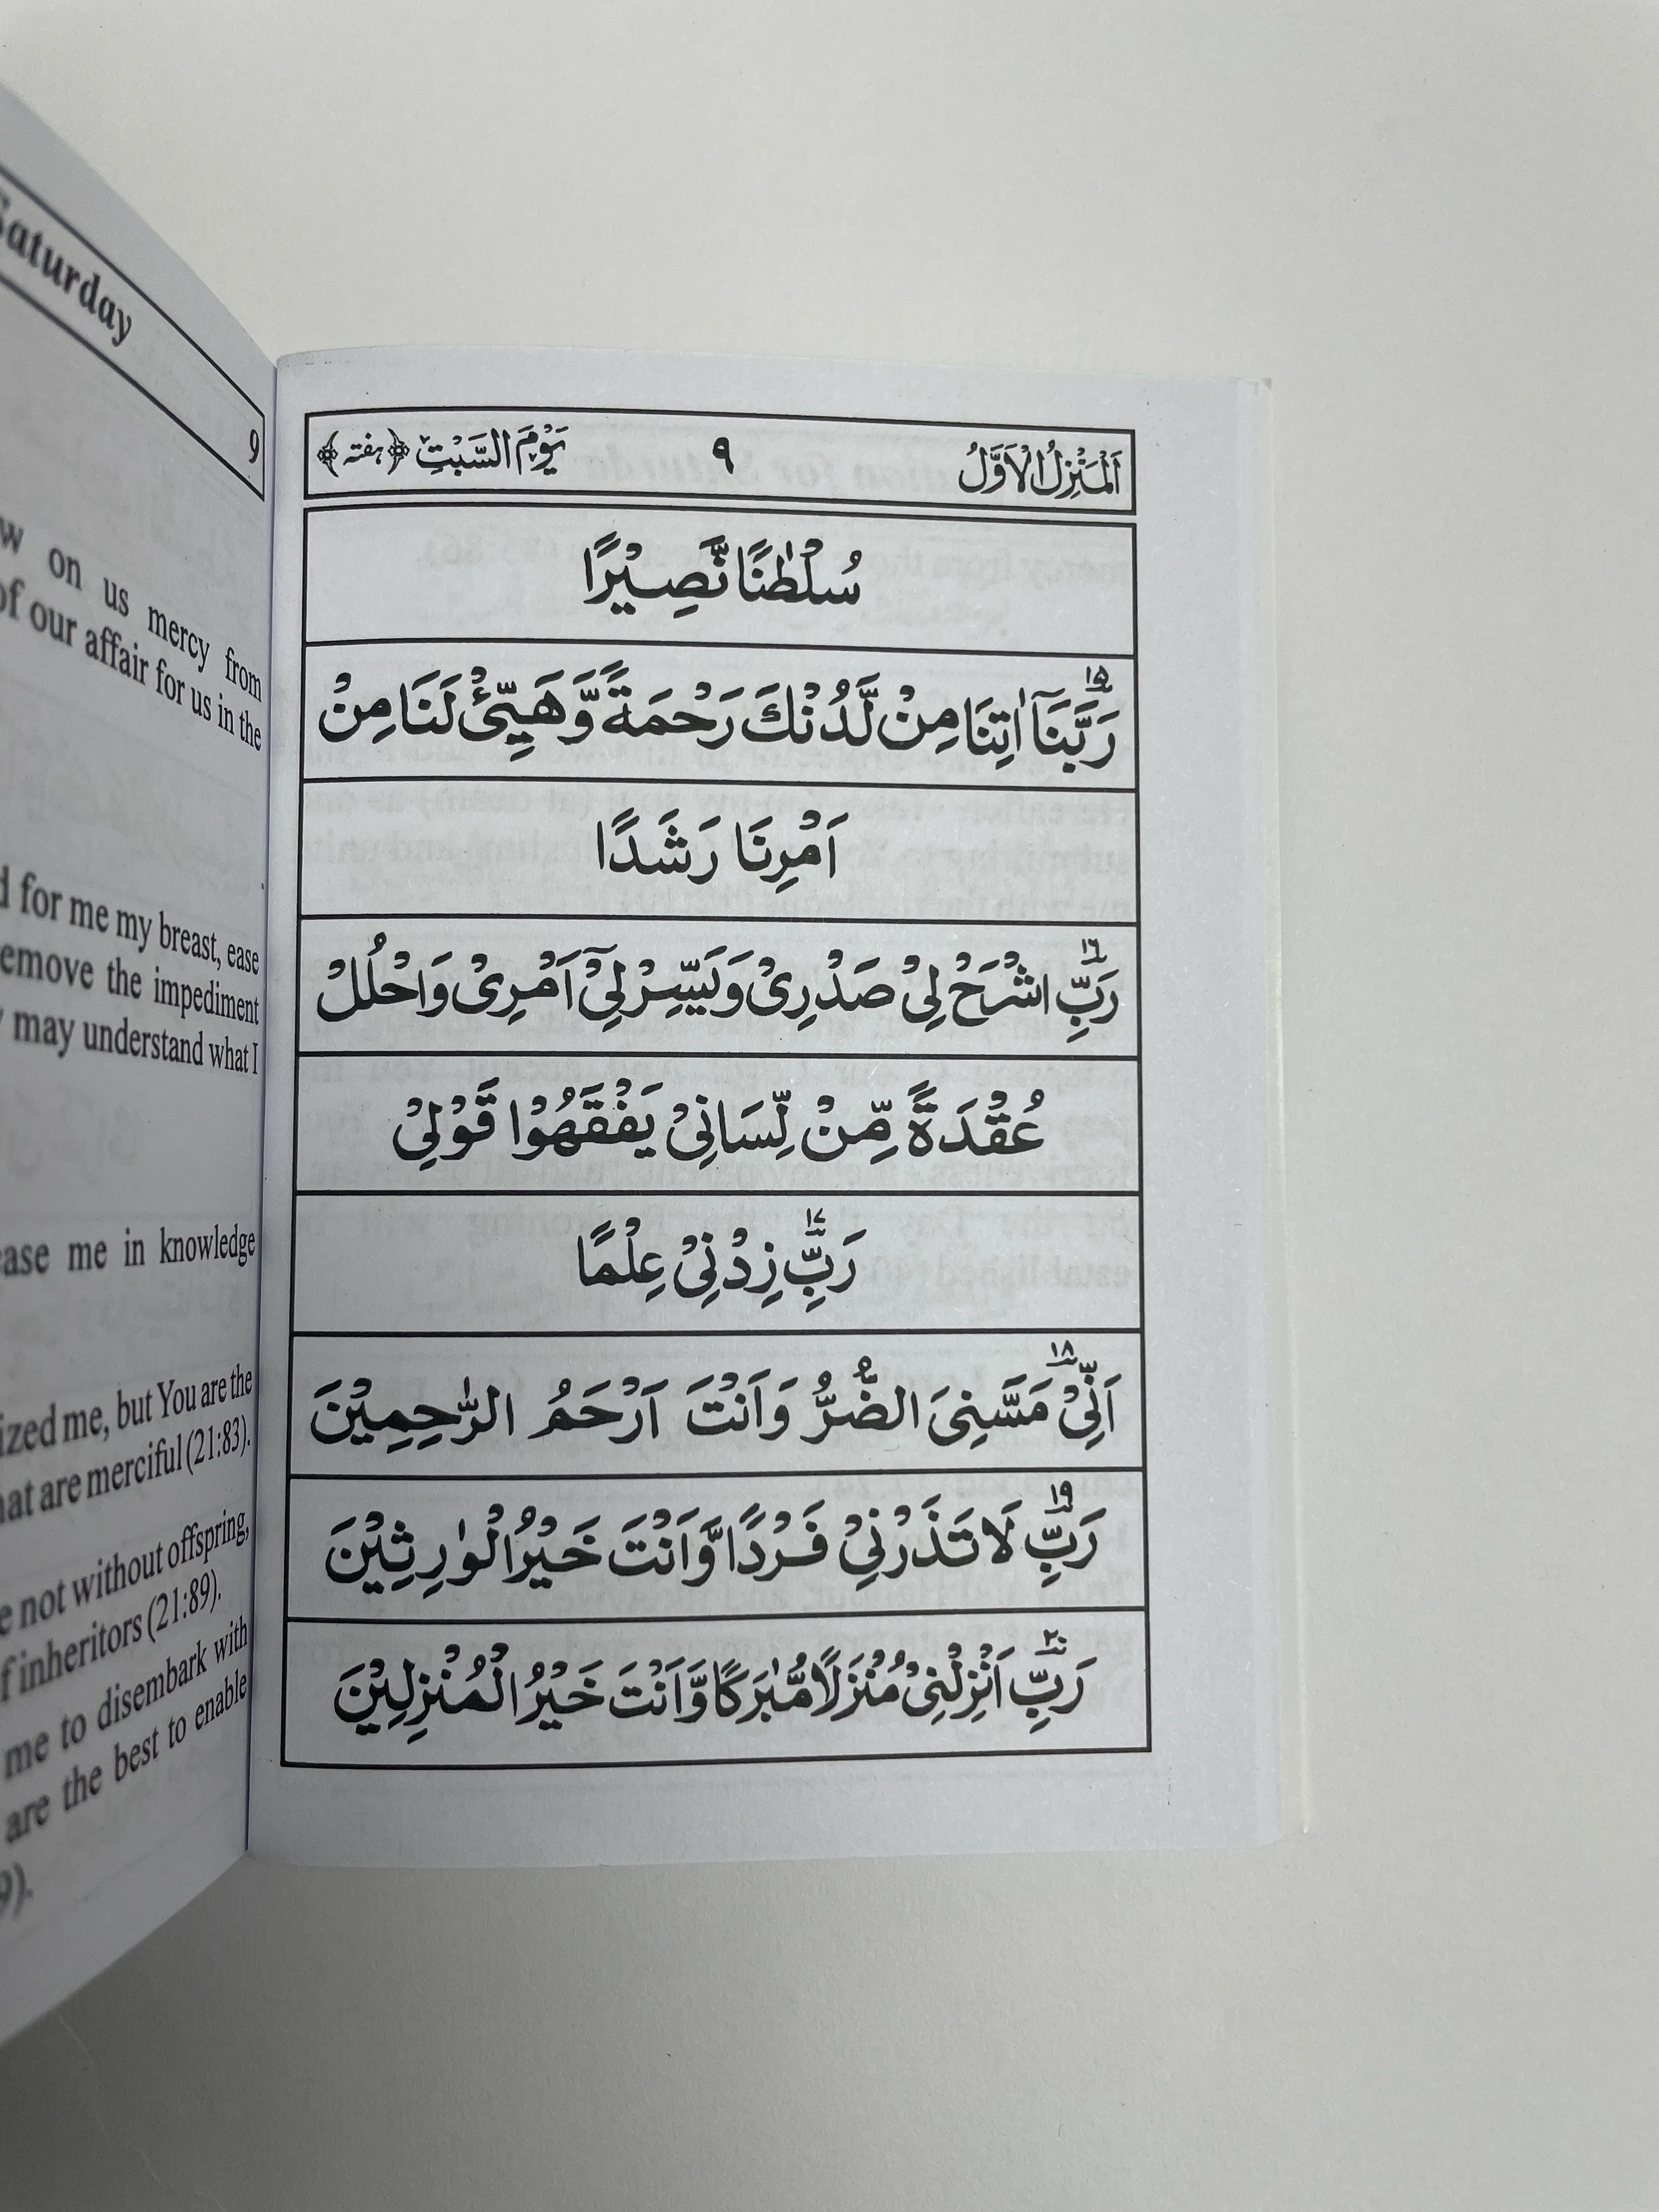 Saturday
9
on us mercy from
of our affair for us in the
for me my breast, ease
remove the impediment
may understand what I
me in knowledge
me, but You are the
that are merciful (21:83).
not without offspring,
of inheritors (21:89).
me to disembark with
are the best to enable
اَلْمَنْزِلُ الْاَوَّلُ ٩ يَوْمَ السَّبْتِ ﴿هفته﴾
سُلْطٰنًا نَّصِيْرًا
١٥ رَبَّنَآ اٰتِنَا مِنْ لَّدُنْكَ رَحْمَةً وَّهَيِّئْ لَنَا مِنْ
اَمْرِنَا رَشَدًا
١٦ رَبِّ اشْرَحْ لِيْ صَدْرِيْ وَيَسِّرْ لِيْٓ اَمْرِيْ وَاحْلُلْ
عُقْدَةً مِّنْ لِّسَانِيْ يَفْقَهُوْا قَوْلِيْ
١٧ رَبِّ زِدْنِيْ عِلْمًا
١٨ اَنِّيْ مَسَّنِيَ الضُّرُّ وَاَنْتَ اَرْحَمُ الرّٰحِمِيْنَ
١٩ رَبِّ لَا تَذَرْنِيْ فَرْدًا وَّاَنْتَ خَيْرُ الْوٰرِثِيْنَ
٢٠ رَبِّ اَنْزِلْنِيْ مُنْزَلًا مُّبٰرَكًا وَّاَنْتَ خَيْرُ الْمُنْزِلِيْنَ